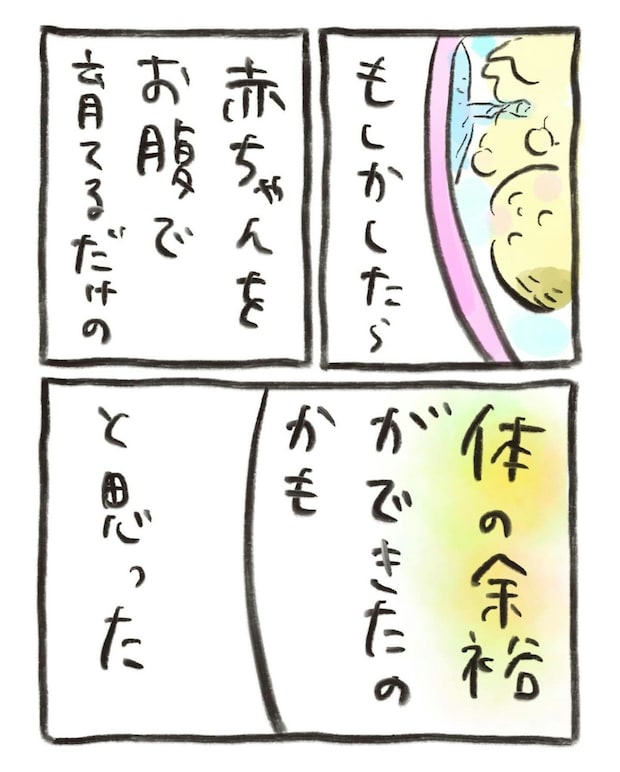 もしかしたら
赤ちゃんを
お腹で
育てるだけの
体の余裕
ができたの
かも
と思った